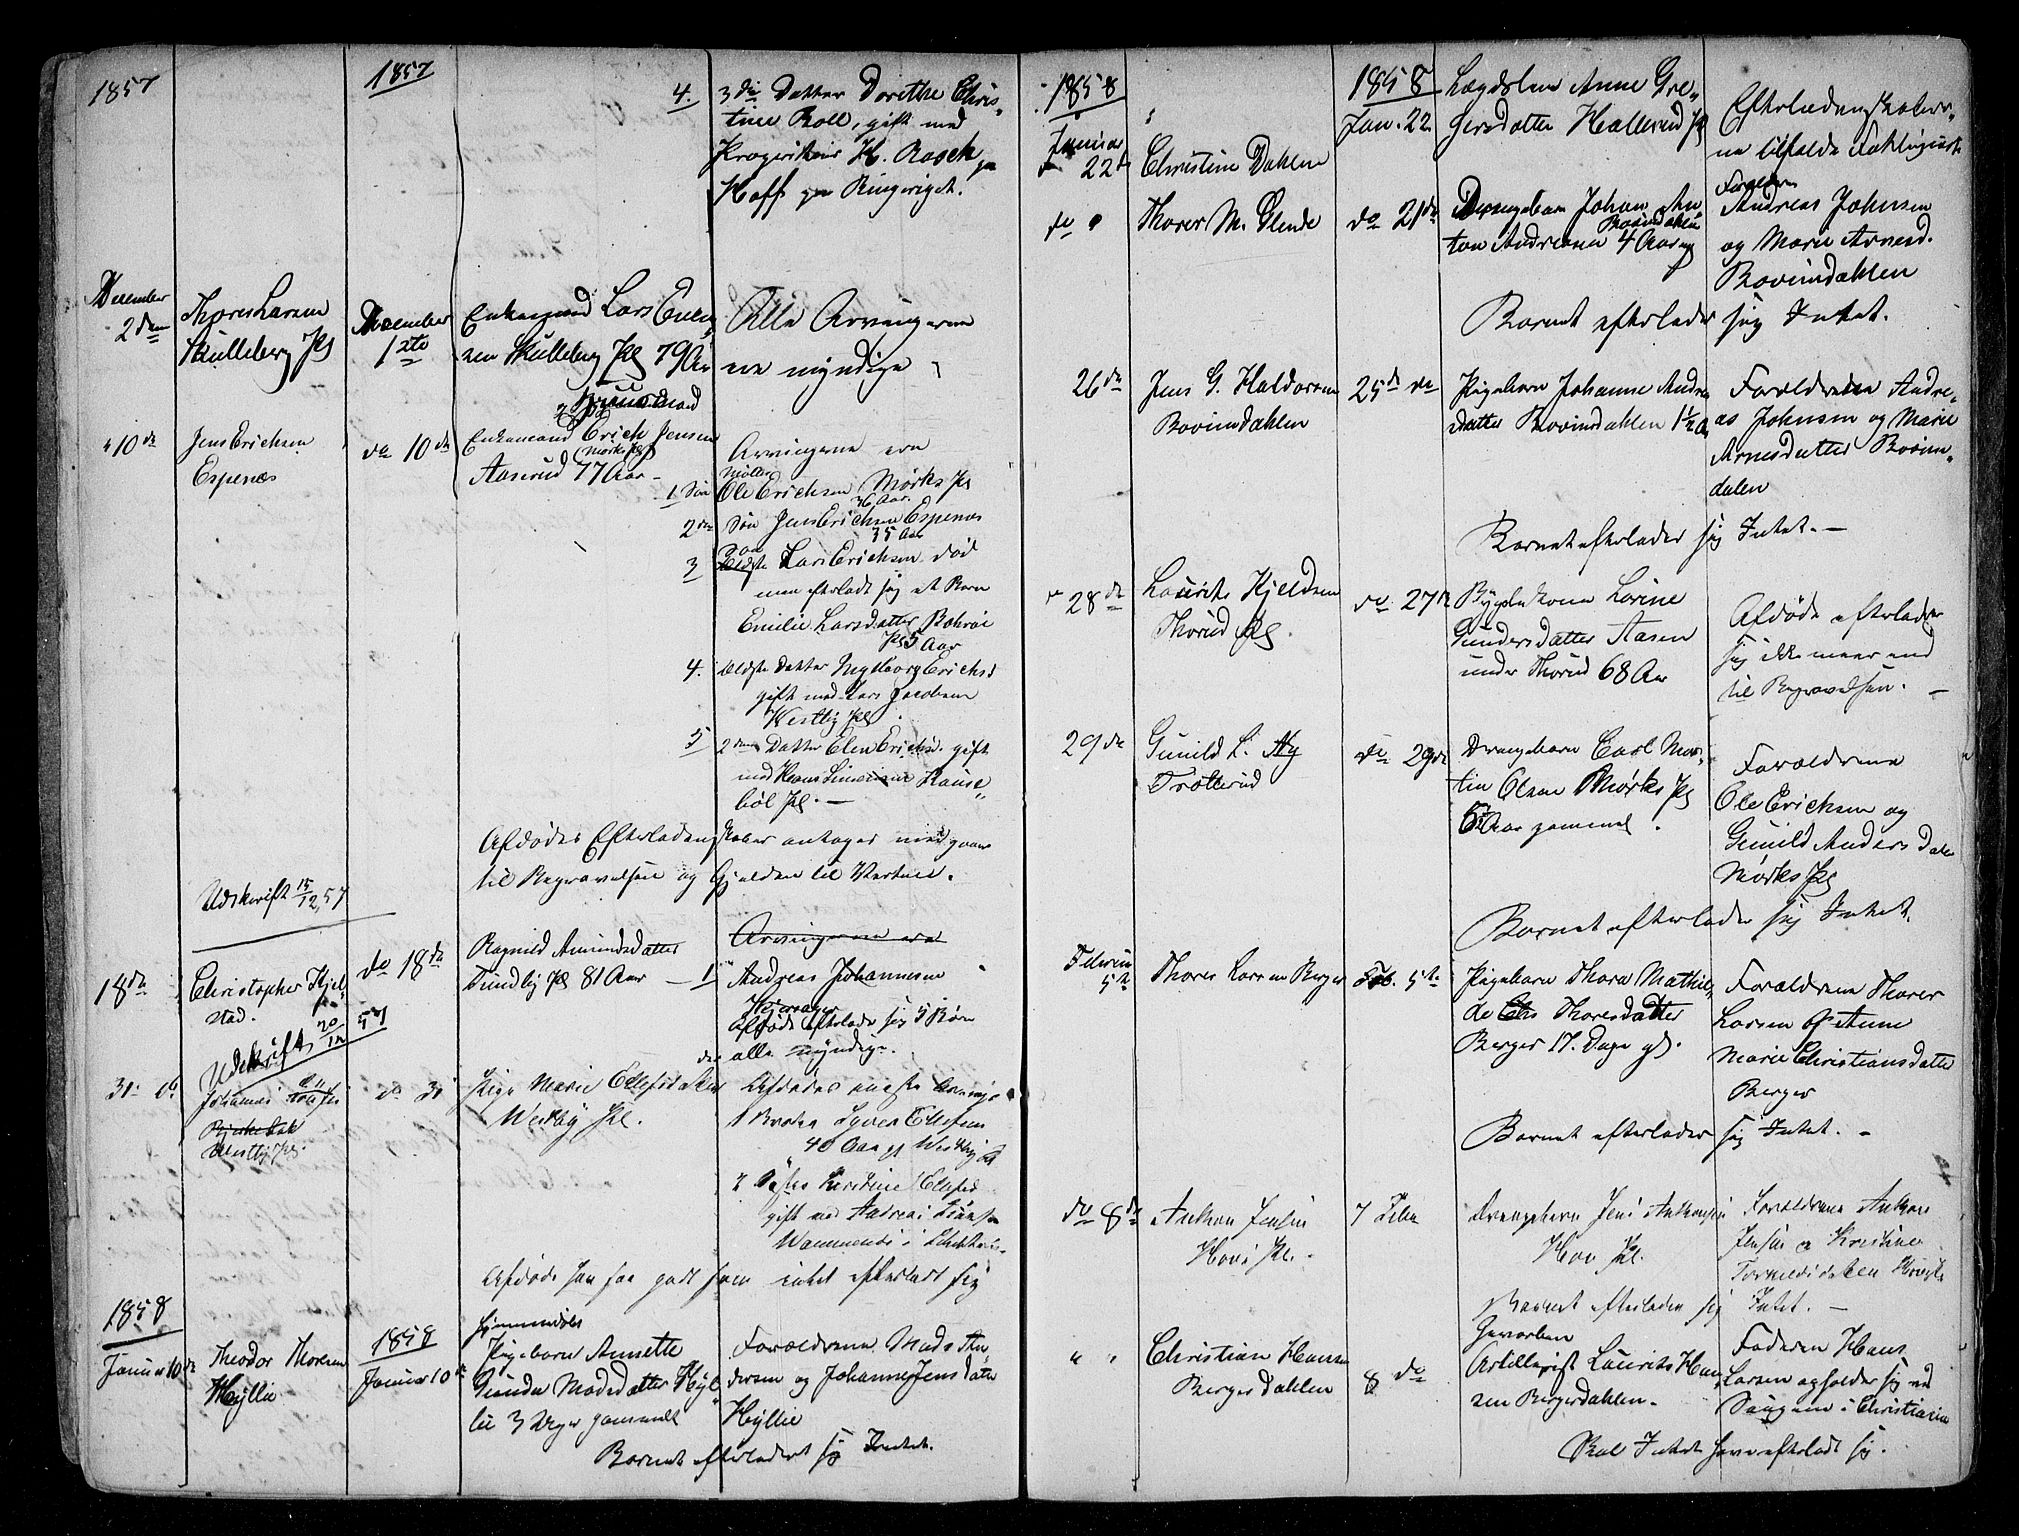 1857
1857
4. 3die Datter Dorethe Chris-
tine Roll, gift med
H. Rasch
Hoff paa Ringeriget.
December
2den
Thores Larsen
Skulleberg Pl
December
1ste
Enkemand Lars Even-
sen Skulleberg Pl 79 Aar
Alle Arvingerne
ere myndige
10de
Jens Erichsen
Espenæs
do 10de
Enkemand Erich Jensen
(Mørks Pl)
Aaserud 77 Aar
Arvingerne ere
1 Søn
Ole Erichsen Mørks Pl
36 Aar
2den Søn Jens Erichsen Espenæs
35 Aar
3 Lars Erichsen død
men efterladt sig et Barn
Emilie Larsdatter
Pl 5 Aar
4. Eldste Datter Ingeborg Erichsd
gift med Lars Jacobsen
Westby Pl.
5 2den Datter Elen Erichsd. gift
med Hans Simensen Hause-
bøl Pl. —
Afdødes Efterladenskaber antages medgaar
til Begravelsen og Gjelden til
Udskrift 15/12 57
18de
Christopher Kjel-
stad.
do 18de
Ragnild Amundsdatter
Tundby Pl 81 Aar — 1
Arvingerne ere
Andreas Johannesen
Afdøde efterlader sig 5 Børn
alle myndige.
Udskrift 20/12 57
31 do
Johannes
Westby Pl.
do 31
Pige Marie Ellefsdatter
Westby Pl.
Afdødes
1 Broder Syver Ellefsen
40 Aar g Westby Pl
2 Søster Kirstine Ellefsd
gift med Andreas
Afdøde saa godt som intet efterladt sig
1858
Januar 10de
Theodor Thoresen
Hyllie
1858
Januar 10de
Hjemmedøbt
Pigebarn Annette
Gunda Madsdatter Hyl-
lie 3 Uger gammelt
Forældrene Mads An-
dersen og Johanne Jensdatter
Hyllie
Barnet efterladert sig Intet.
1858
Januar
22de
Christine Dahlen
1858
Jan. 22
Lægdslem Anne Gre-
gersdatter Hallerud Pl
Efterladenskaber-
ne tilfalde Fattigvæs.
do
Thorer M. Glende
do 21de
Drengebarn Johan An-
ton Andreasen 4 Aar g
Bovimdahlen
Forældre
Andreas Johnsen
og Marie Arnesd.
Bovimdahlen
Barnet efterlader sig Intet.
26de
Jens G. Haldorsen
Bovimdahlen
25de do
Pigebarn Johanne Andrea
datter Bovimdahlen 1½ Aar
Forældrene Andre-
as Johnsen og Marie
Arnesdatter Bovim-
dalen
Barnet efterlader sig Intet. —
28de
Laurits Kjeldsen
Thorud Pl.
do 27de
Lorine
Gundersdatter Aasen
under Thorud 68 Aar
Afdøde efterlader
sig ikke meer end
til Begravelsen. —
29de
Gunild L. Ny
Trollerud
do 29de
Drengebarn Carl Mar-
tin Olsen Mørks Pl
6 Aar gammel.
Forældrene
Ole Erichsen og
Gunild Anders Datter
Mørks Pl
Barnet efterlader sig Intet.
Februar
5te
Thorer Larsen Berger
Feb. 5te
Pigebarn Thora Mathil-
de Thoresdatter
Berger 17. Dage gl.
Forældrene Thorer
Larsen og Anne
Marie Christiansdatter
Berger
Barnet efterlader sig Intet. —
do 8de
Anthon Jensen
Hovs Pl.
7 Febr
Drengebarn Jens Anthonsen
Hov Pl.
Forældrene Anthon
Jensen og Kristine
Barnet efterlader sig Intet. —
Christian Hansen
Berger Dahlen
8 do
Gevorben
Artillerist Laurits Han-
sen Bergerdahlen.
Faderen Hans
Larsen opholder sig ved
Saugene i Christiania
Skal Intet have efterladt sig.